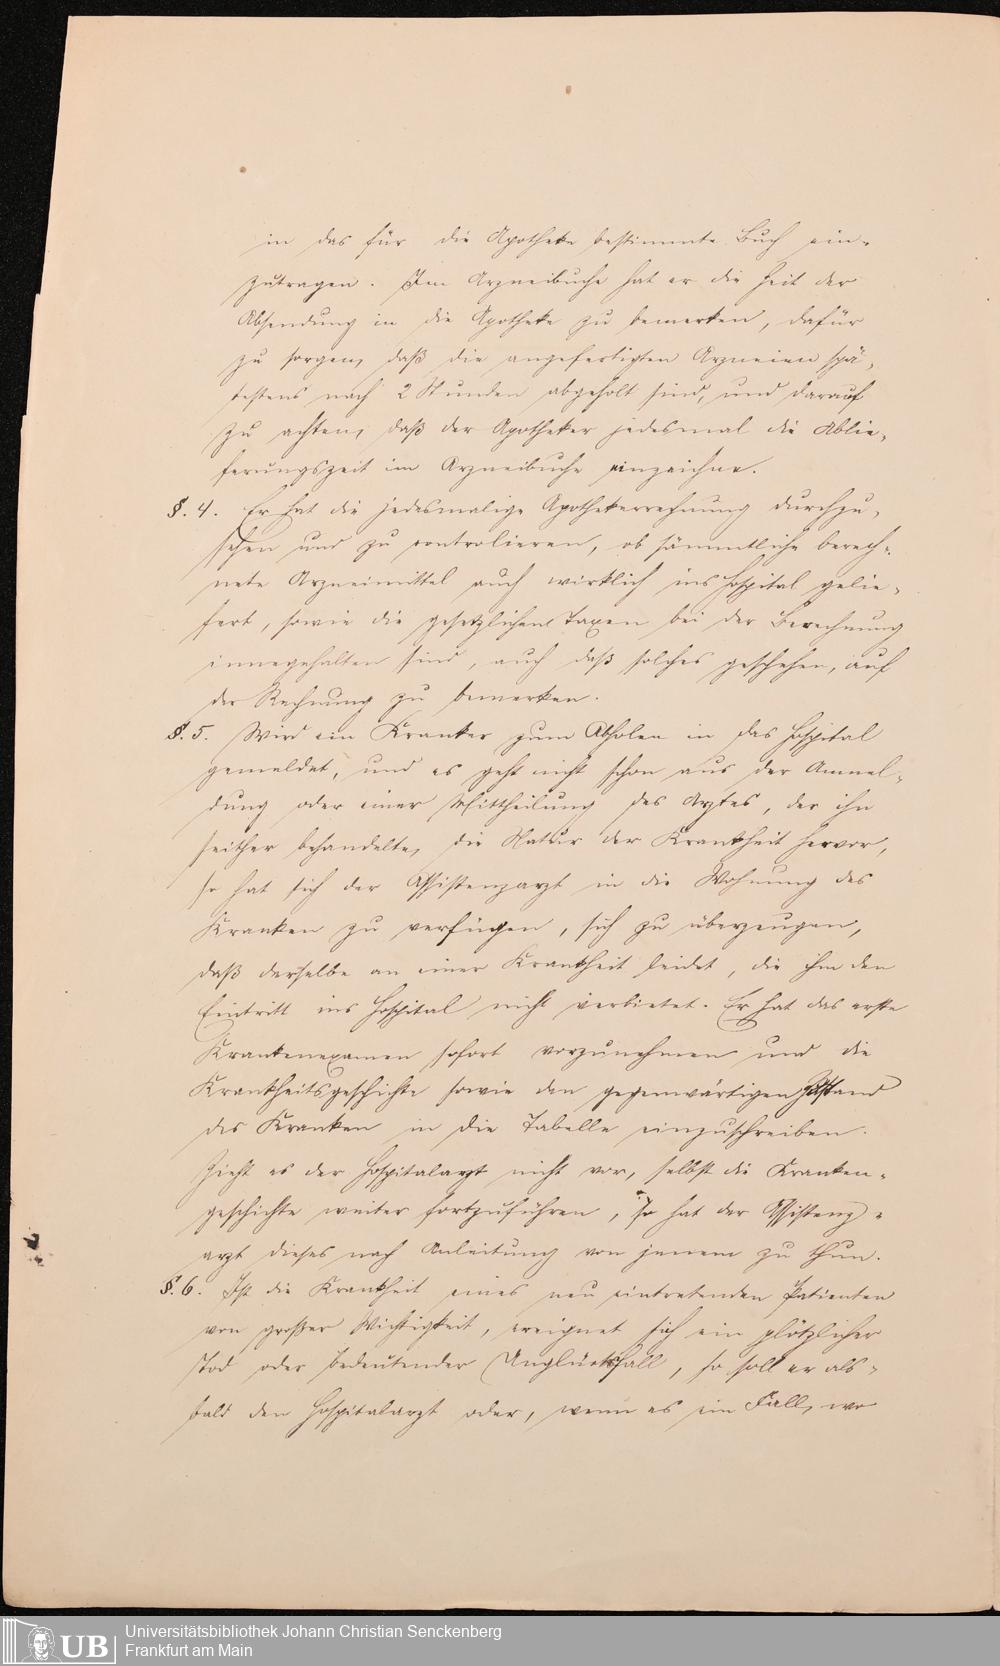 in das für die Apotheke bestimmte Buch ein-
zutragen. Im Arzneibuche hat er die Zeit der
Absendung in die Apotheke zu bemerken, dafür
zu sorgen, daß die angefertigten Arzneien spä-
testens nach 2 Stunden abgeholt sind, und darauf
zu achten, daß der Apotheker jedesmal die Ablie-
ferungszeit im Arzneibuche einzeichne.
§. 4. Er hat die jedesmalige Apothekerrechnung durchzu-
sehen und zu controlieren, ob sämmtliche berech-
nete Arzneimittel auch wirklich ins Hospital gelie-
fert, sowie die gesetzlichen Taxen bei der Berechnung
innegehalten sind, auch daß solches geschehen, auf
der Rechnung zu bemerken.
§. 5. Wird ein Kranker zum Abholen in das Hospital
gemeldet, und es geht nicht schon aus der Anmel-
dung oder einer Mittheilung des Arztes, der ihn
seither behandelte, die Natur der Krankheit hervor,
so hat sich der Assistenzarzt in die Wohnung des
Kranken zu verfügen, sich zu überzeugen,
daß derselbe an einer Krankheit leidet, die ihm den
Eintritt ins Hospital nicht verbietet. Er hat das erste
Krankenexamen sofort vorzunehmen und die
Krankheitsgeschichte sowie den gegenwärtigen Zustand
des Kranken in die Tabelle einzuschreiben.
Zieht es der Hospitalarzt nicht vor, selbst die Kranken-
geschichte weiter fortzuführen, so hat der Assistenz-
arzt dieses nach Anleitung von jenem zu thun.
§. 6. Ist die Krankheit eines neu eintretenden Patienten
von großer Wichtigkeit, ereignet sich ein plötzlicher
Tod oder bedeutender Unglücksfall, so soll er als-
bald den Hospitalarzt oder, wenn es ein Fall, wo
UB Universitätsbibliothek Johann Christian Senckenberg
Frankfurt am Main